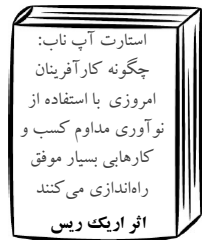 استارت آپ ناب:
چگونه کارآفرینان
امروزی با استفاده از
نوآوری مداوم کسب و
کارهایی بسیار موفق
راه‌اندازی می‌کنند
اثر اریک ریس